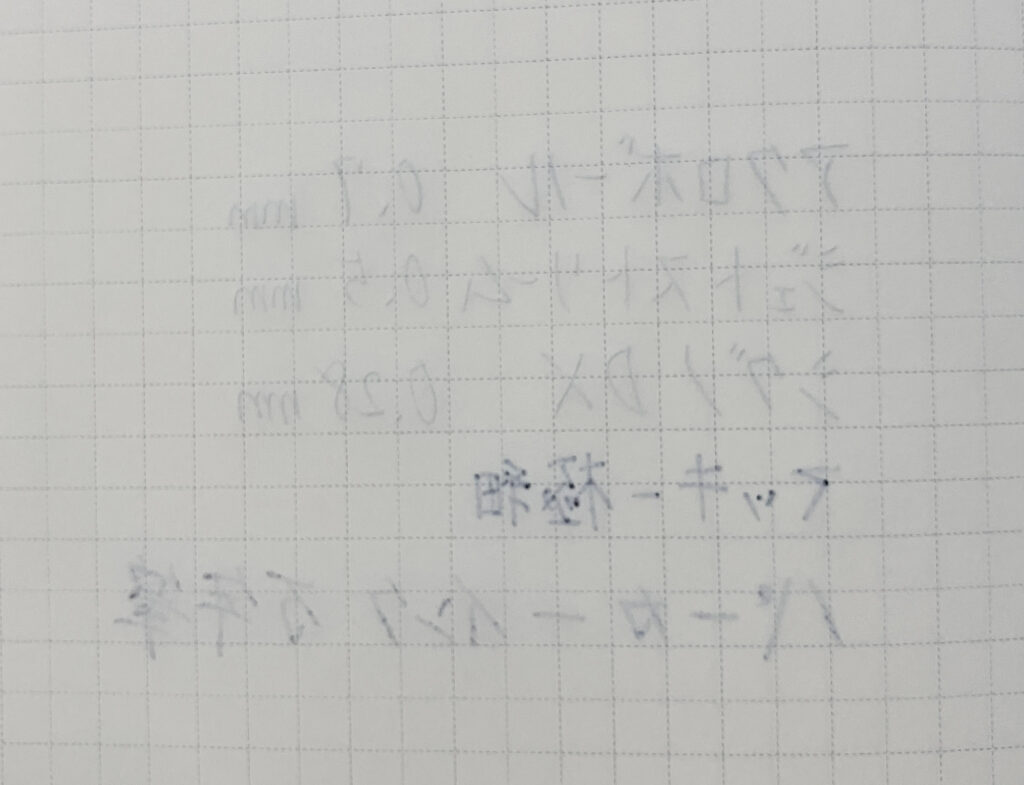 アクロボール 0.7 mm
ジェットストリーム 0.5 mm
シグノ DX 0.28 mm
マッキー極細
パーカーインク 万年筆